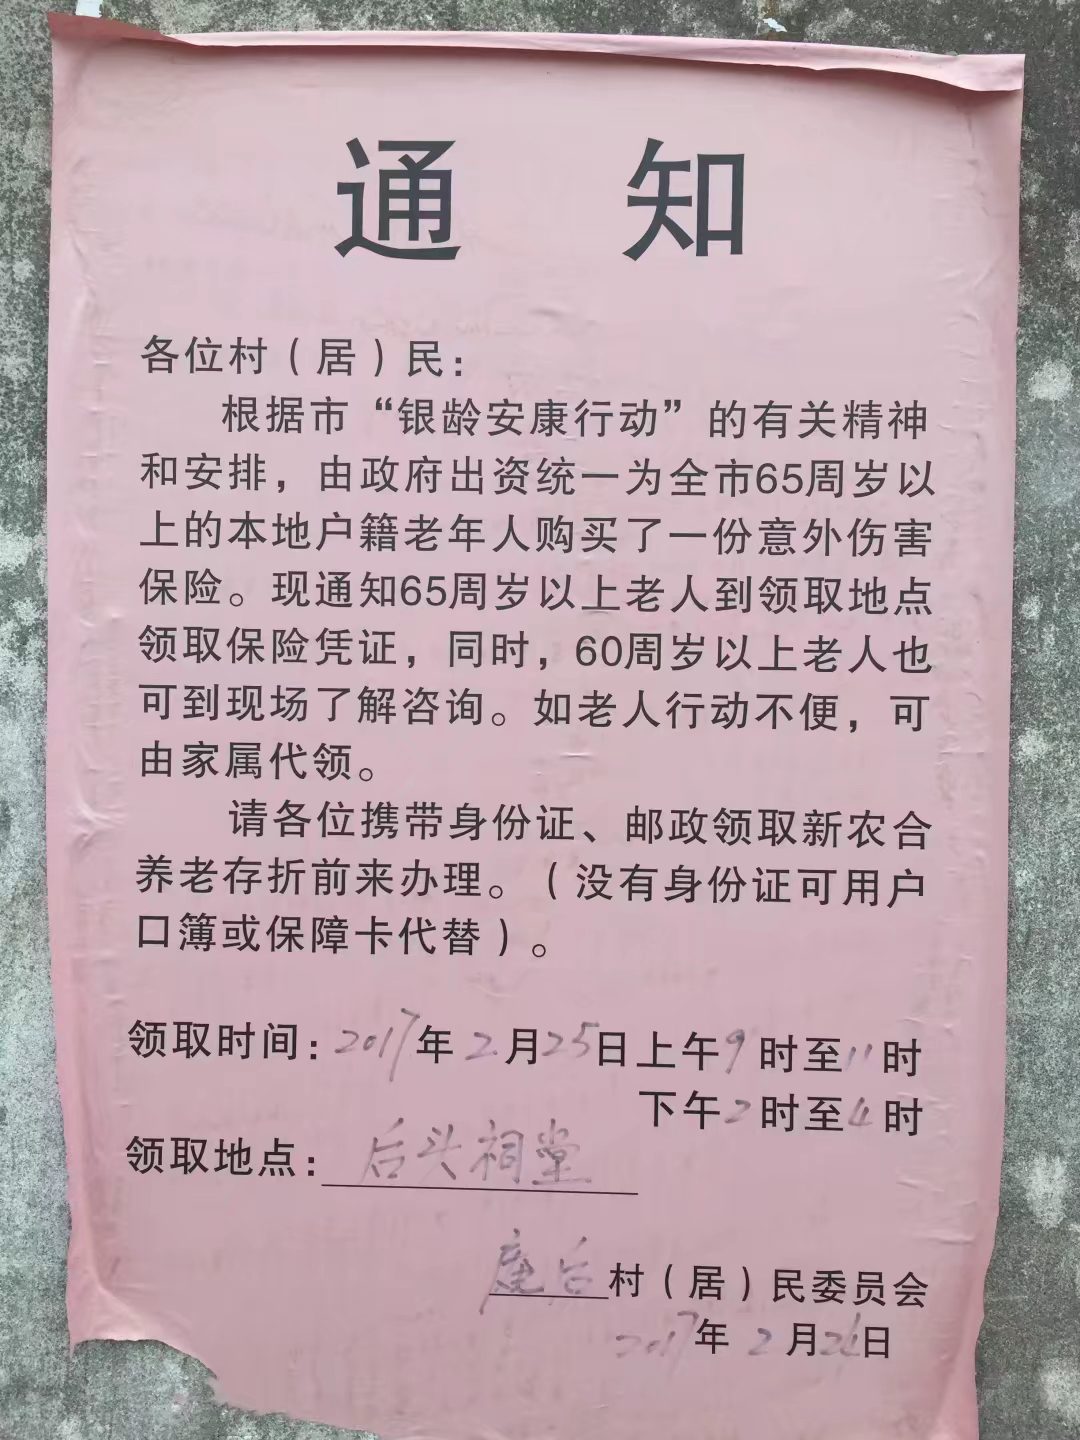 通知
各位村（居）民：
根据市“银龄安康行动”的有关精神
和安排，由政府出资统一为全市65周岁以
上的本地户籍老年人购买了一份意外伤害
保险。现通知65周岁以上老人到领取地点
领取保险凭证，同时，60周岁以上老人也
可到现场了解咨询。如老人行动不便，可
由家属代领。
请各位携带身份证、邮政领取新农合
养老存折前来办理。（没有身份证可用户
口簿或保障卡代替）。
领取时间：2017年2月25日上午9时至11时
下午2时至4时
领取地点：后头祠堂
鹿后村（居）民委员会
2017年2月24日